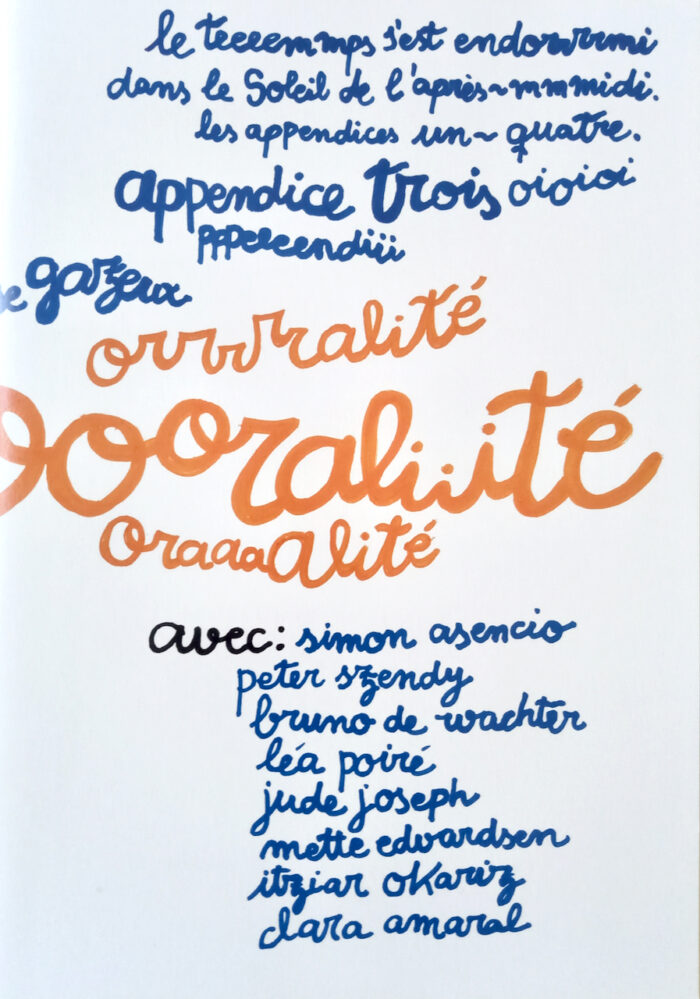 le teeeemmps s'est endorrrrmi
dans le Soleil de l'après~mmmidi.
les appendices un~quatre.
appendice trois oioioi
pppeeeendiii
gazeux
orrrralité
oooraliiité
OraaaAlité
avec: simon asencio
peter szendy
bruno de wachter
léa poiré
jude joseph
mette edvardsen
itziar okariz
clara amaral